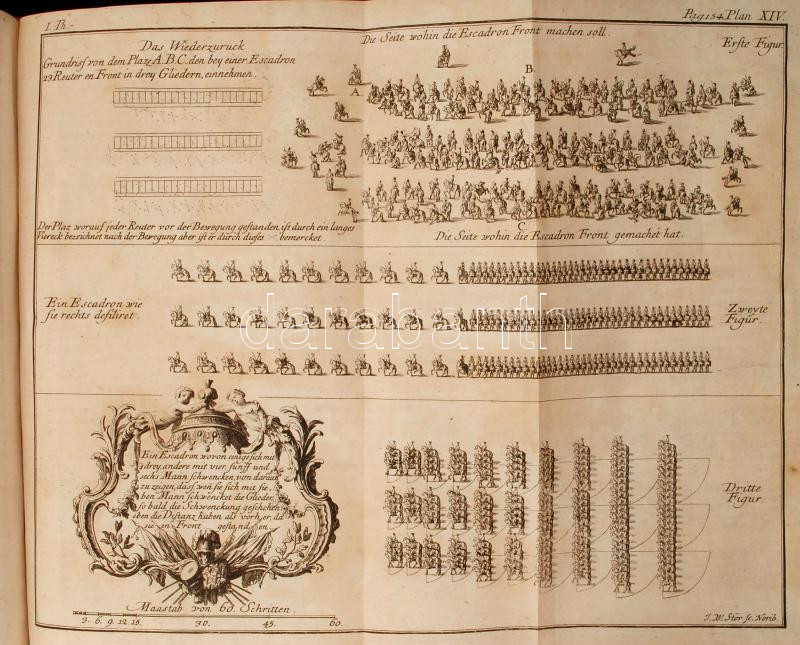 I. Th.
Pag 134. Plan XIV.
Das Wiederzuruck
Grundriss von dem Plaze A. B. C. den bey einer Escadron
23 Reuter en Front in drey Gliedern, einnehmen.
Die Seite wohin die Escadron Front machen soll.
Erste Figur.
A
B
C
Der Plaz worauf jeder Reuter vor der Bewegung gestanden, ist durch ein langes
Viereck bezeichnet nach der Bewegung aber ist er durch dieses bemercket.
Die Seite wohin die Escadron Front gemachet hat.
Ein Escadron wie
sie rechts defiliret.
Zweyte
Figur.
darabanth
Ein Escadron wovon einige sich mit
drey, andere mit vier, fünff und
sechs Mann schwencken, um daraus
zu zeigen, dass, wen sie sich mit sie
ben Mann schwencket die Glieder,
so bald die Schwenckung geschehen
eben die Distanz haben als vorher, da
sie en Front gestanden.
Dritte
Figur.
Maastab von 60. Schritten.
3. 6. 9. 12. 15. 30. 45. 60.
J. W. Stör sc. Norib.